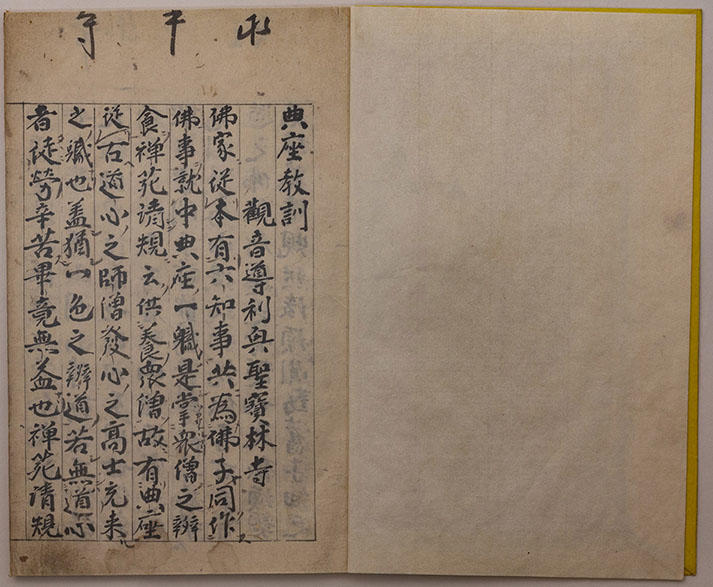 永平寺
典座教訓
觀音導利興聖寳林寺
佛家從本有六知事共為佛子同作
佛事就中典座一軄是掌衆僧之辨
食禅苑清規云供養衆僧故有典座
從古道心之師僧發心之高士充来
之軄也盖猶一色之辨道若無道心
者徒勞辛苦畢竟無益也禅苑清規